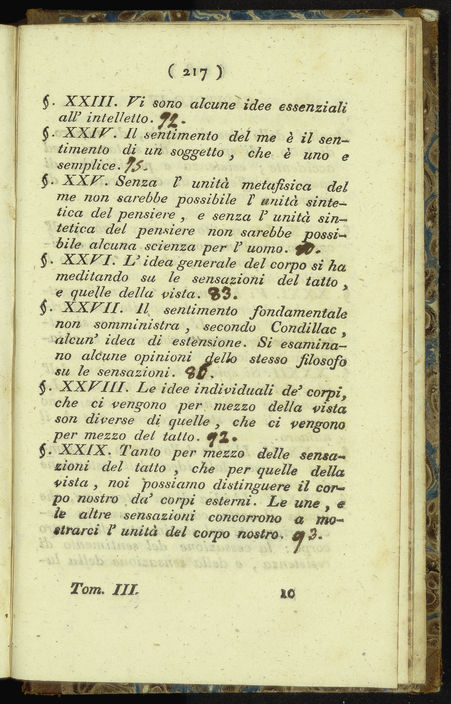 ( 217 )
§. XXIII. Vi sono alcune idee essenziali
all' intelletto. 72.
§. XXIV. Il sentimento del me è il sen-
timento di un soggetto, che è uno e
semplice. 75.
§. XXV. Senza l' unità metafisica del
me non sarebbe possibile l' unità sinte-
tica del pensiere, e senza l' unità sin-
tetica del pensiere non sarebbe possi-
bile alcuna scienza per l' uomo.
§. XXVI. L' idea generale del corpo si ha
meditando su le sensazioni del tatto,
e quelle della vista. 83.
§. XXVII. Il sentimento fondamentale
non somministra, secondo Condillac,
alcun' idea di estensione. Si esamina-
no alcune opinioni dello stesso filosofo
su le sensazioni. 86.
§. XXVIII. Le idee individuali de' corpi,
che ci vengono per mezzo della vista
son diverse di quelle, che ci vengono
per mezzo del tatto. 92.
§. XXIX. Tanto per mezzo delle sensa-
zioni del tatto, che per quelle della
vista, noi possiamo distinguere il cor-
po nostro da' corpi esterni. Le une, e
le altre sensazioni concorrono a mo-
strarci l' unità del corpo nostro. 93.
Tom. III. 10